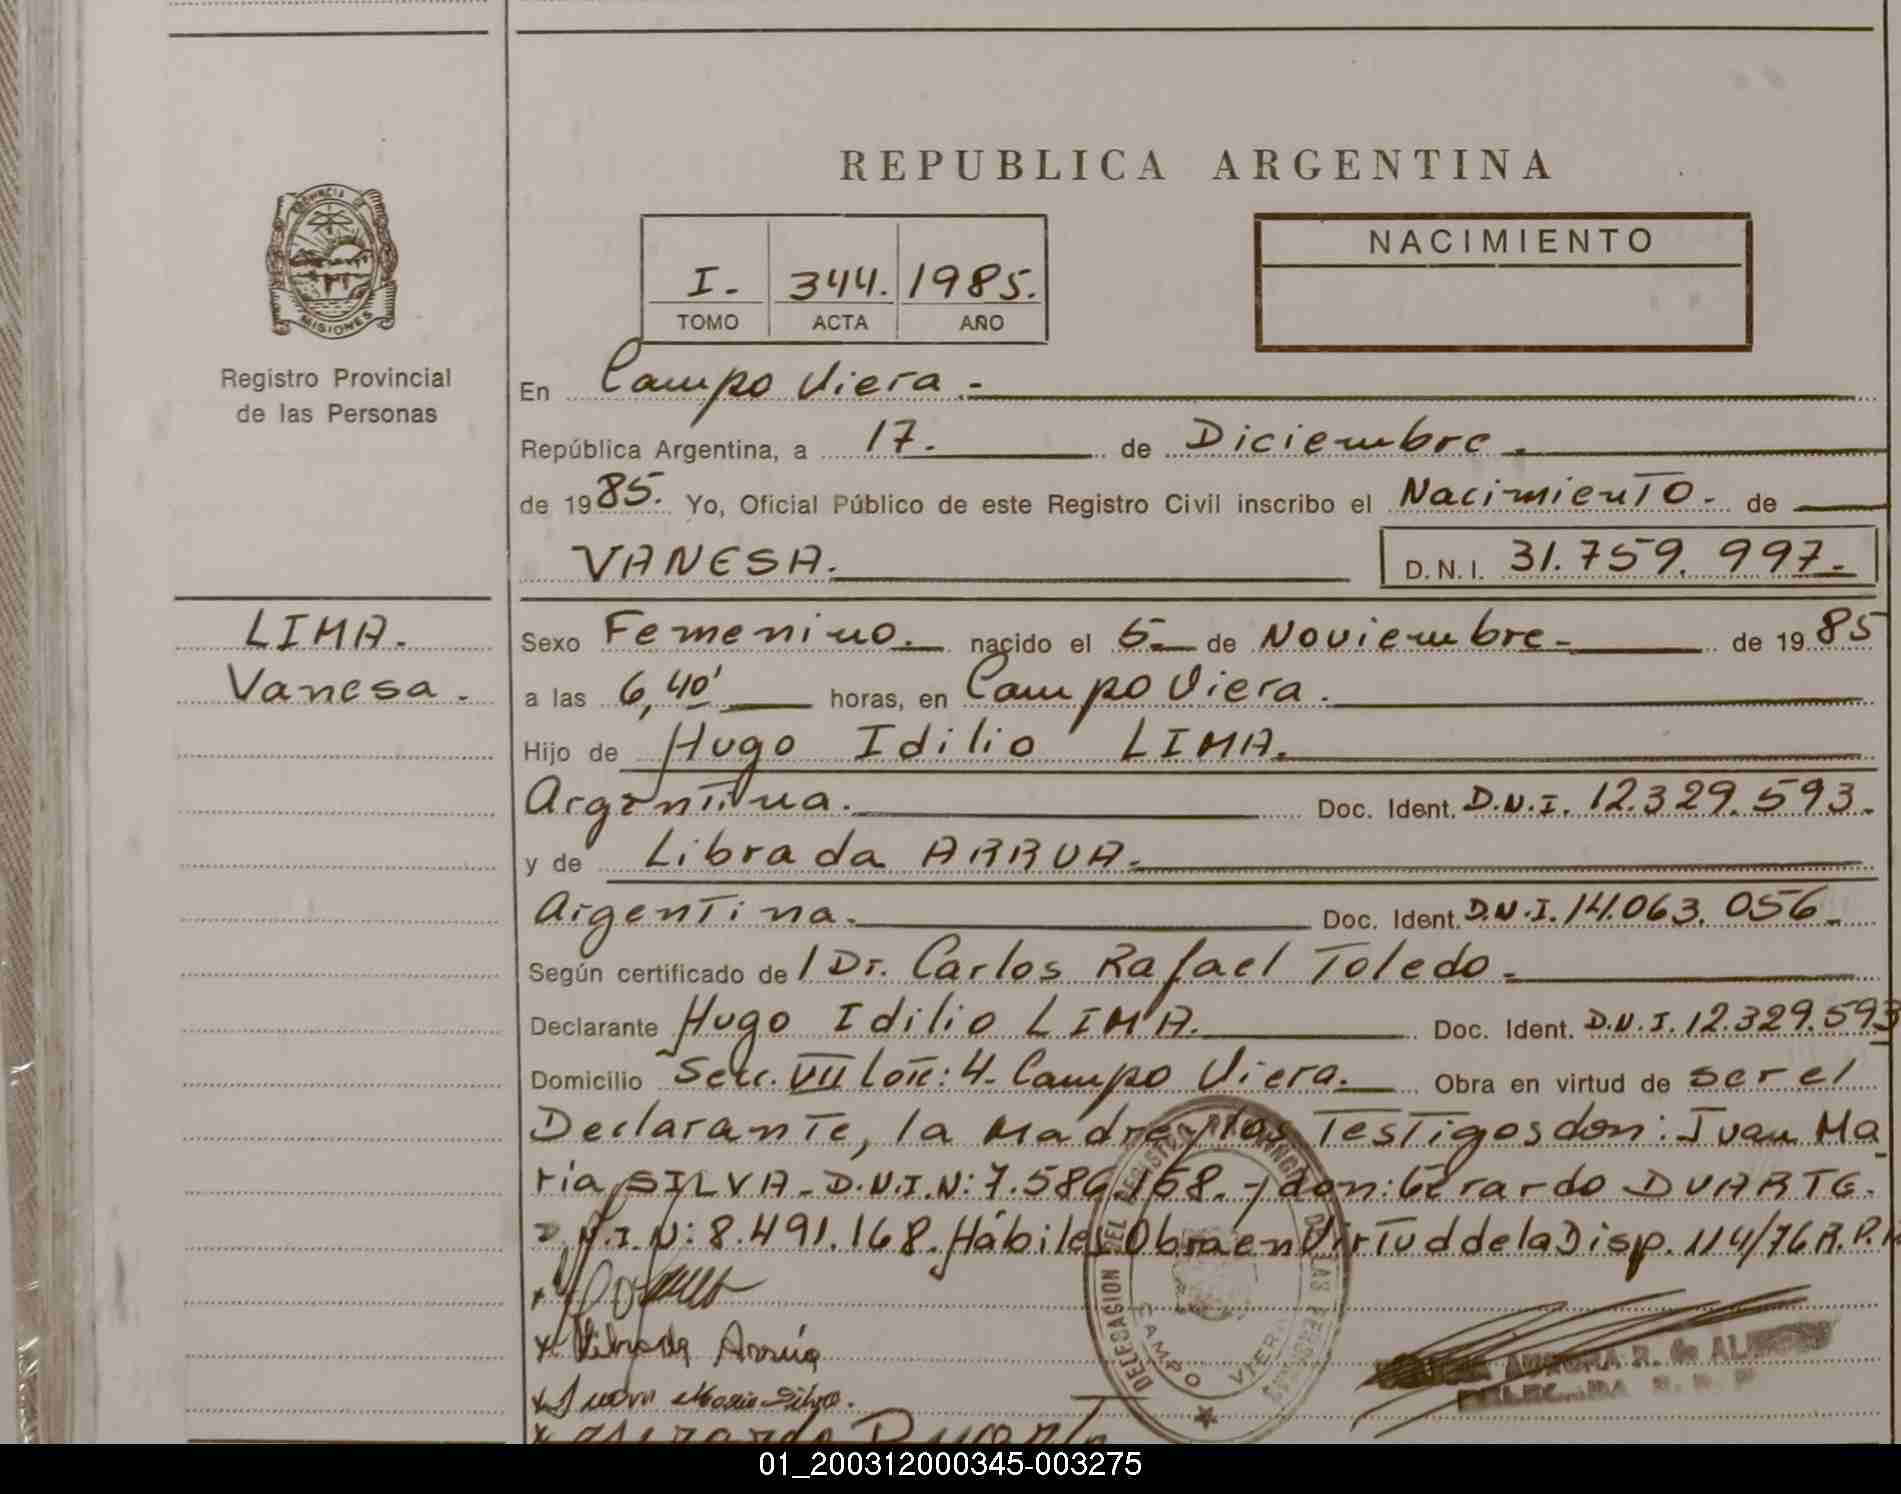 REPUBLICA ARGENTINA
PROVINCIA DE
MISIONES
Registro Provincial
de las Personas
I. 344. 1985.
TOMO ACTA AÑO
NACIMIENTO
En Campo Viera.-
República Argentina, a 17. de Diciembre.
de 1985. Yo, Oficial Público de este Registro Civil inscribo el Nacimiento.- de
VANESA. D.N.I. 31.759.997.-
LIMA.
Vanesa.
Sexo Femenino. nacido el 5- de Noviembre- de 1985
a las 6,40' horas, en Campo Viera.
Hijo de Hugo Idilio LIMA.
Argentina. Doc. Ident. D.N.I. 12.329.593.-
y de Librada ARRUA.-
Argentina. Doc. Ident. D.N.I. 14.063.056.-
Según certificado de l Dr. Carlos Rafael Toledo.-
Declarante Hugo Idilio LIMA. Doc. Ident. D.N.I. 12.329.593
Domicilio Secc. VII Lote: 4. Campo Viera. Obra en virtud de ser el
Declarante, la Madre y los Testigos don: Juan Ma
ría SILVA- D.N.I.N: 7.586.158.- y don: Gerardo DUARTE.
D.N.I.N: 8.491.168. Hábiles Obra en Virtud de la Disp. 114/76 R.P.
x Librada Arrúa
x Juan Maria Silva.
x Gerardo Duarte
DELEGACION DEL REGISTRO DE LAS PERSONAS
CAMPO VIERA
AURORA R. de
01_200312000345-003275